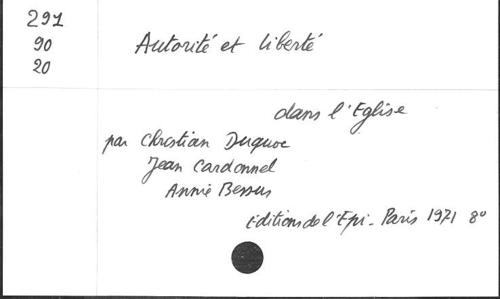 291
90
20
Autorité et liberté
dans l'Eglise
par Christian Duquoc
Jean Cardonnel
Annie Bessus
Editions de l'Epi - Paris 1971 8°